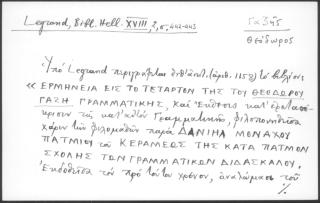 Legrand, Bibl. Hell. XVIII, 2, σ. 442-443
Γαζῆς
Θεόδωρος
Ὑπὸ Legrand περιγράφεται ὑπ' ἀριθ. 1158 τὸ βιβλίον
« ΕΡΜΗΝΕΙΑ ΕΙΣ ΤΟ ΤΕΤΑΡΤΟΝ ΤΗΣ ΤΟΥ ΘΕΟΔΩΡΟΥ
ΓΑΖΗ ΓΡΑΜΜΑΤΙΚΗΣ, καὶ Ἔκθεσις κατ' ἐρωταπό-
κρισιν τῆς κατ' αὐτὸν Γραμματικῆς, φιλοπονηθεῖσα
χάριν τῶν φιλομαθῶν παρὰ ΔΑΝΙΗΛ ΜΟΝΑΧΟΥ
ΠΑΤΜΙΟΥ τοῦ ΚΕΡΑΜΕΩΣ ΤΗΣ ΚΑΤΑ ΠΑΤΜΟΝ
ΣΧΟΛΗΣ ΤΩΝ ΓΡΑΜΜΑΤΙΚΩΝ ΔΙΔΑΣΚΑΛΟΥ.
Ἐκδοθεῖσα τὸ πρῶτον χρόνον, ἀναλώμασι τοῦ